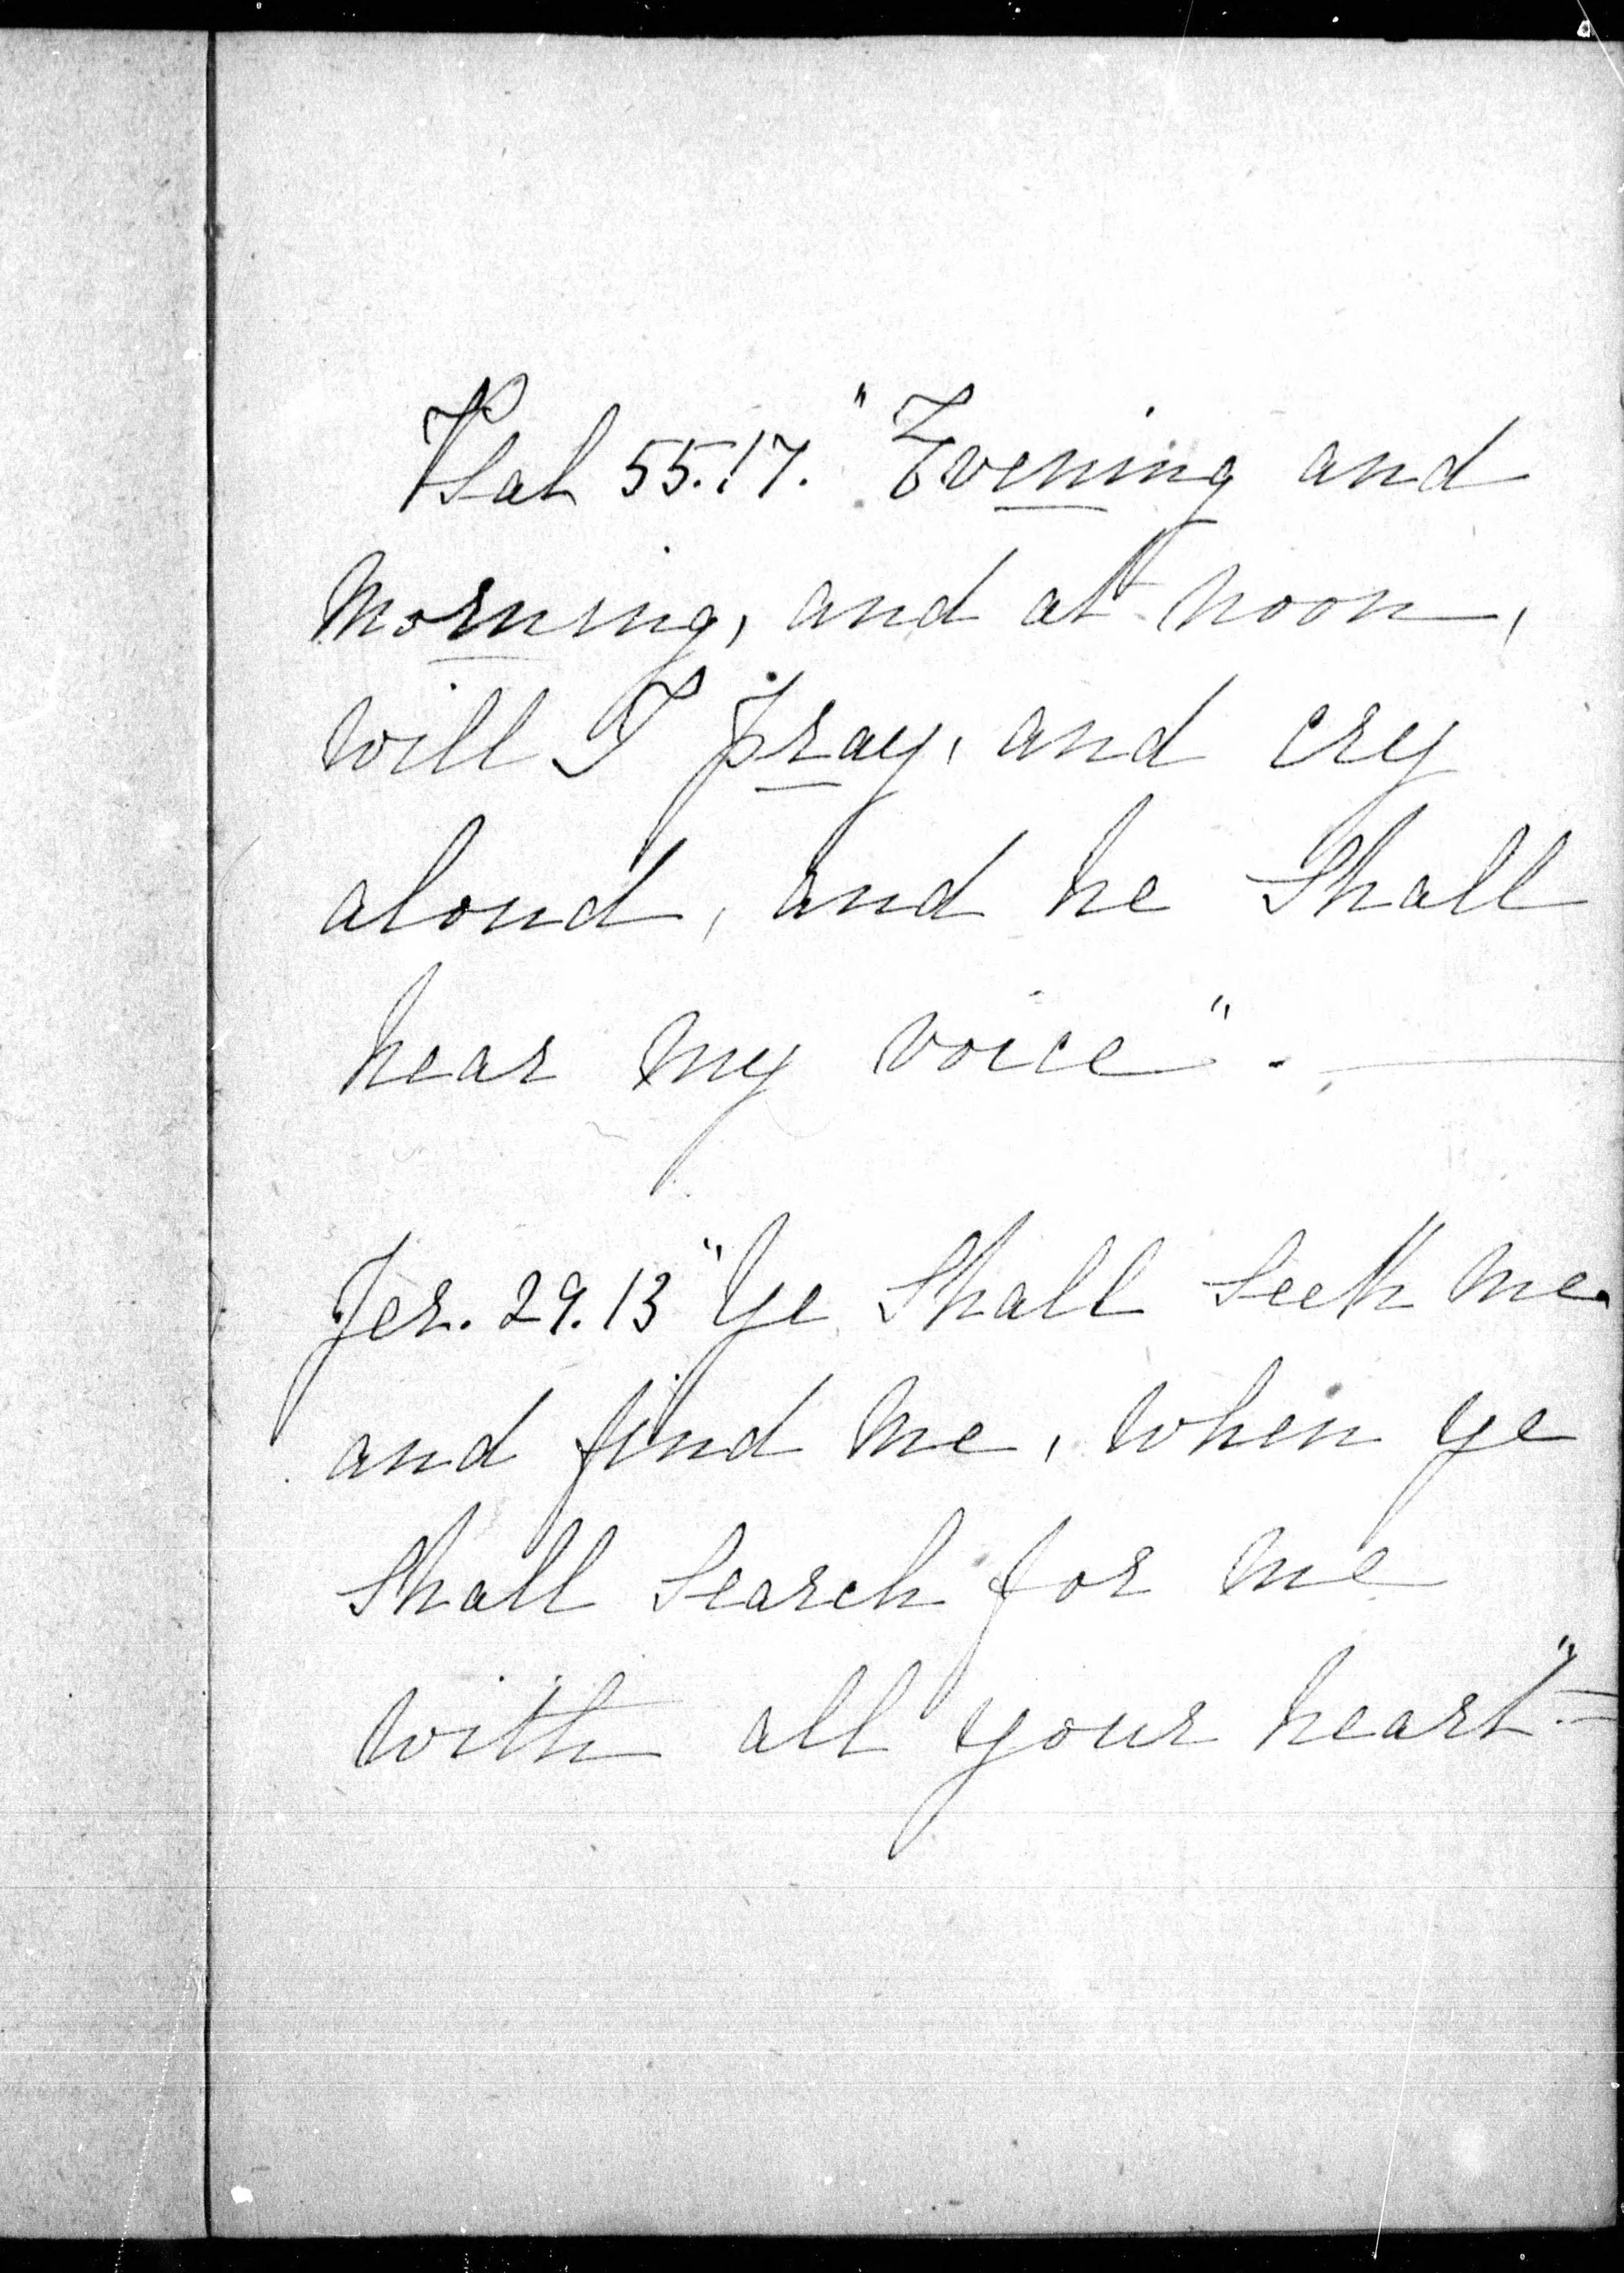 Psal 55.17. "Evening and
morning, and at noon,
will I pray, and cry
aloud, and he shall
hear my voice". —
Jer. 29.13 "Ye shall seek me
and find me, when ye
shall search for me
with all your heart" =